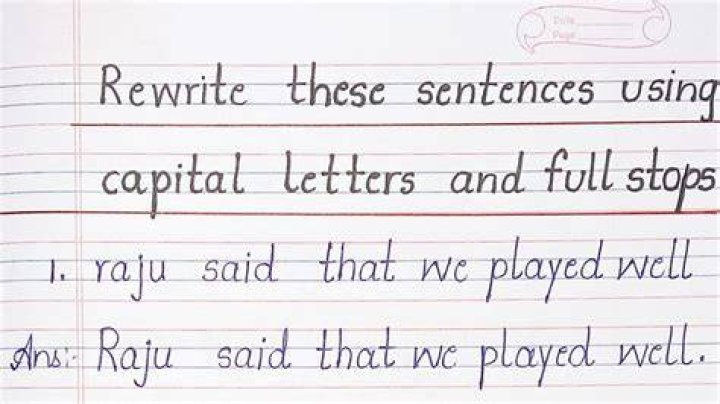 Date
Page
Rewrite these sentences using
capital letters and full stops
1. raju said that we played well
Ans:- Raju said that we played well.